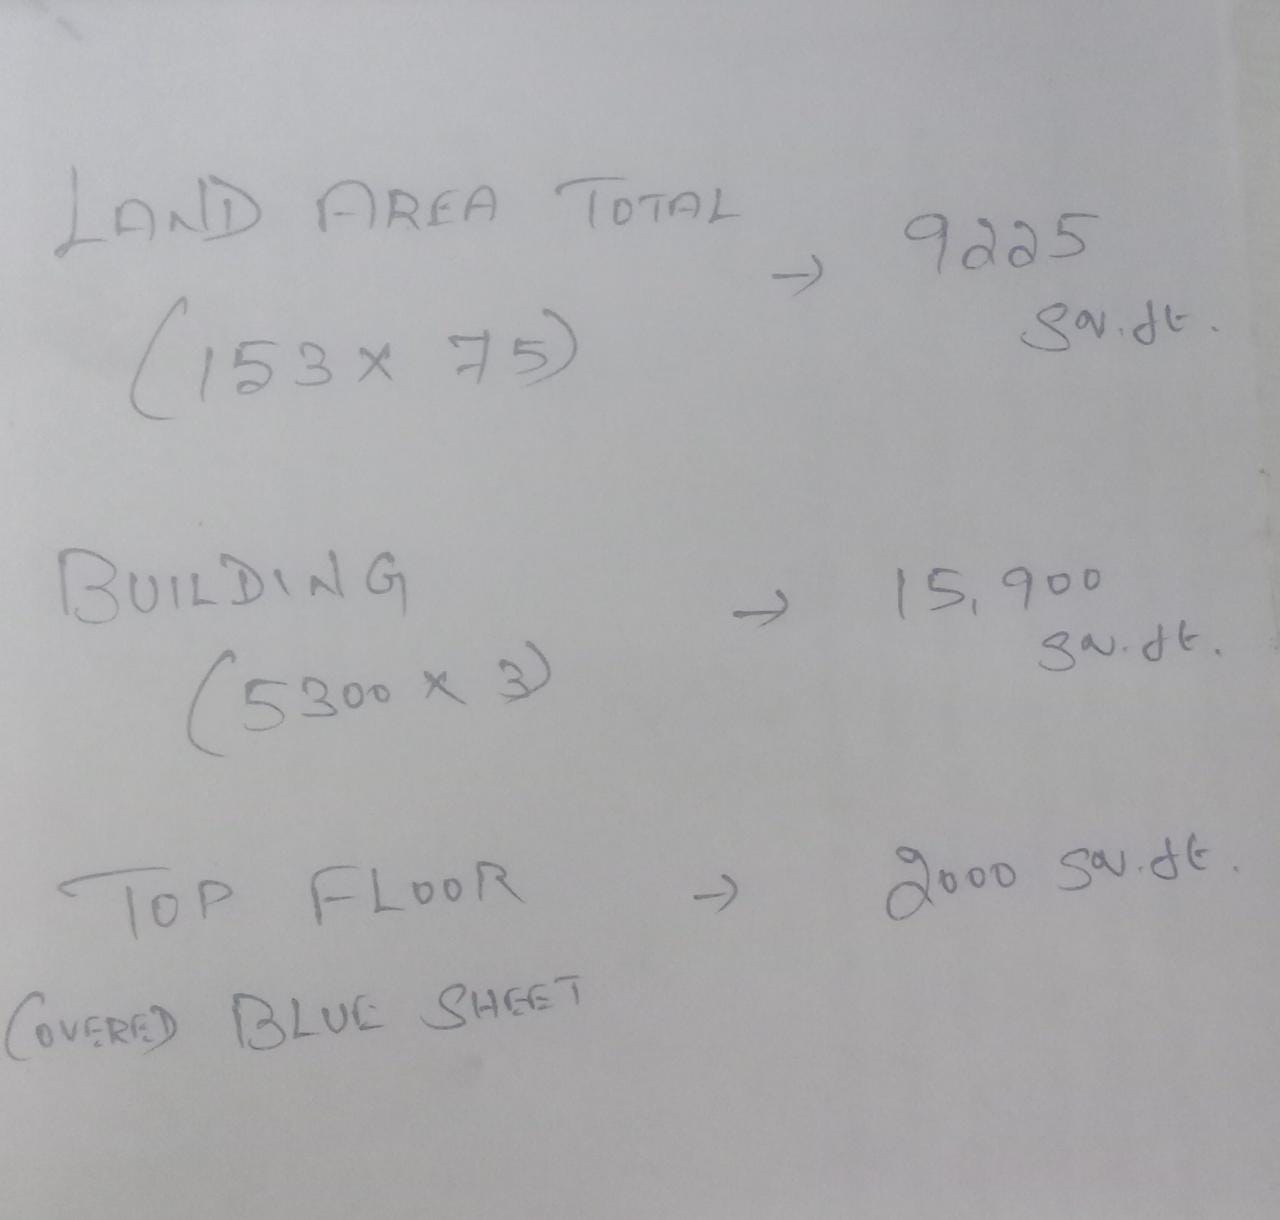 LAND AREA TOTAL → 9225
(153 x 75) sq.ft.
BUILDING → 15,900
(5300 x 3) sq.ft.
TOP FLOOR → 2000 sq.ft.
COVERED BLUE SHEET